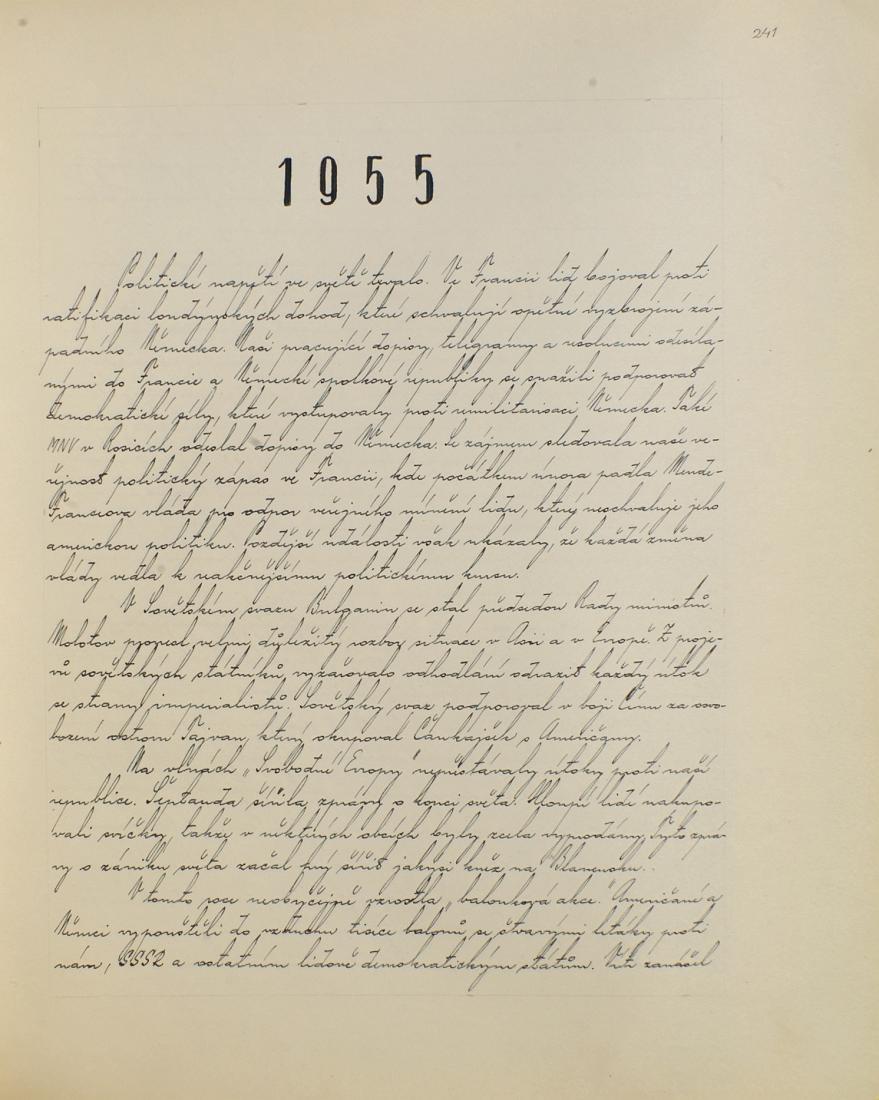 241
1955
Politické napětí ve světě trvalo. Ve Francii lid bojoval proti
ratifikaci londýnských dohod, které schvalují opětné vyzbrojení zá-
padního Německa. Naši pracující dopisy, telegramy a resolucemi odesíla-
nými do Francie a Německé spolkové republiky se snažili podporovat
demokratické síly, které vystupovaly proti remilitarisaci Německa. Také
MNV v Rosicích odeslal dopisy do Německa. Se zájmem sledovala naše ve-
řejnost politický zápas ve Francii, kde počátkem února padla Mende-
Franceova vláda pro odpor veřejného mínění lidu, který neschvaluje jeho
americkou politiku. Pozdější události však ukázaly, že každá změna
vlády vedla k reakčnějšímu politickému kursu.
V Sovětském svazu Bulganin se stal předsedou Rady ministrů.
Molotov pronesl velmi důležitý rozbor situace v Asii a v Evropě. Z proje-
vů sovětských státníků vyzařovalo odhodlání odrazit každý útok
se strany imperialistů. Sovětský svaz podporoval v boji Čínu za osvo-
bození ostrova Tajvan, který okupoval Čankajšek s Američany.
Na vlnách „Svobodné Evropy" nepřestávaly útoky proti naší
republice. Šeptanda šířila zprávy o konci světa. Hloupí lidé nakupo-
vali svíčky, takže v některých obcích byly zcela vyprodány. Tyto zprá-
vy o zániku světa začal prý šířit jakýsi kněz na Blanensku.
V tomto roce neobyčejně vzrostla „balonková akce." Američané a
Němci vypouštěli do vzduchu tisíce balonů se štvavými letáky proti
nám, SSSR a ostatním lidově demokratickým státům. Vítr zanášel